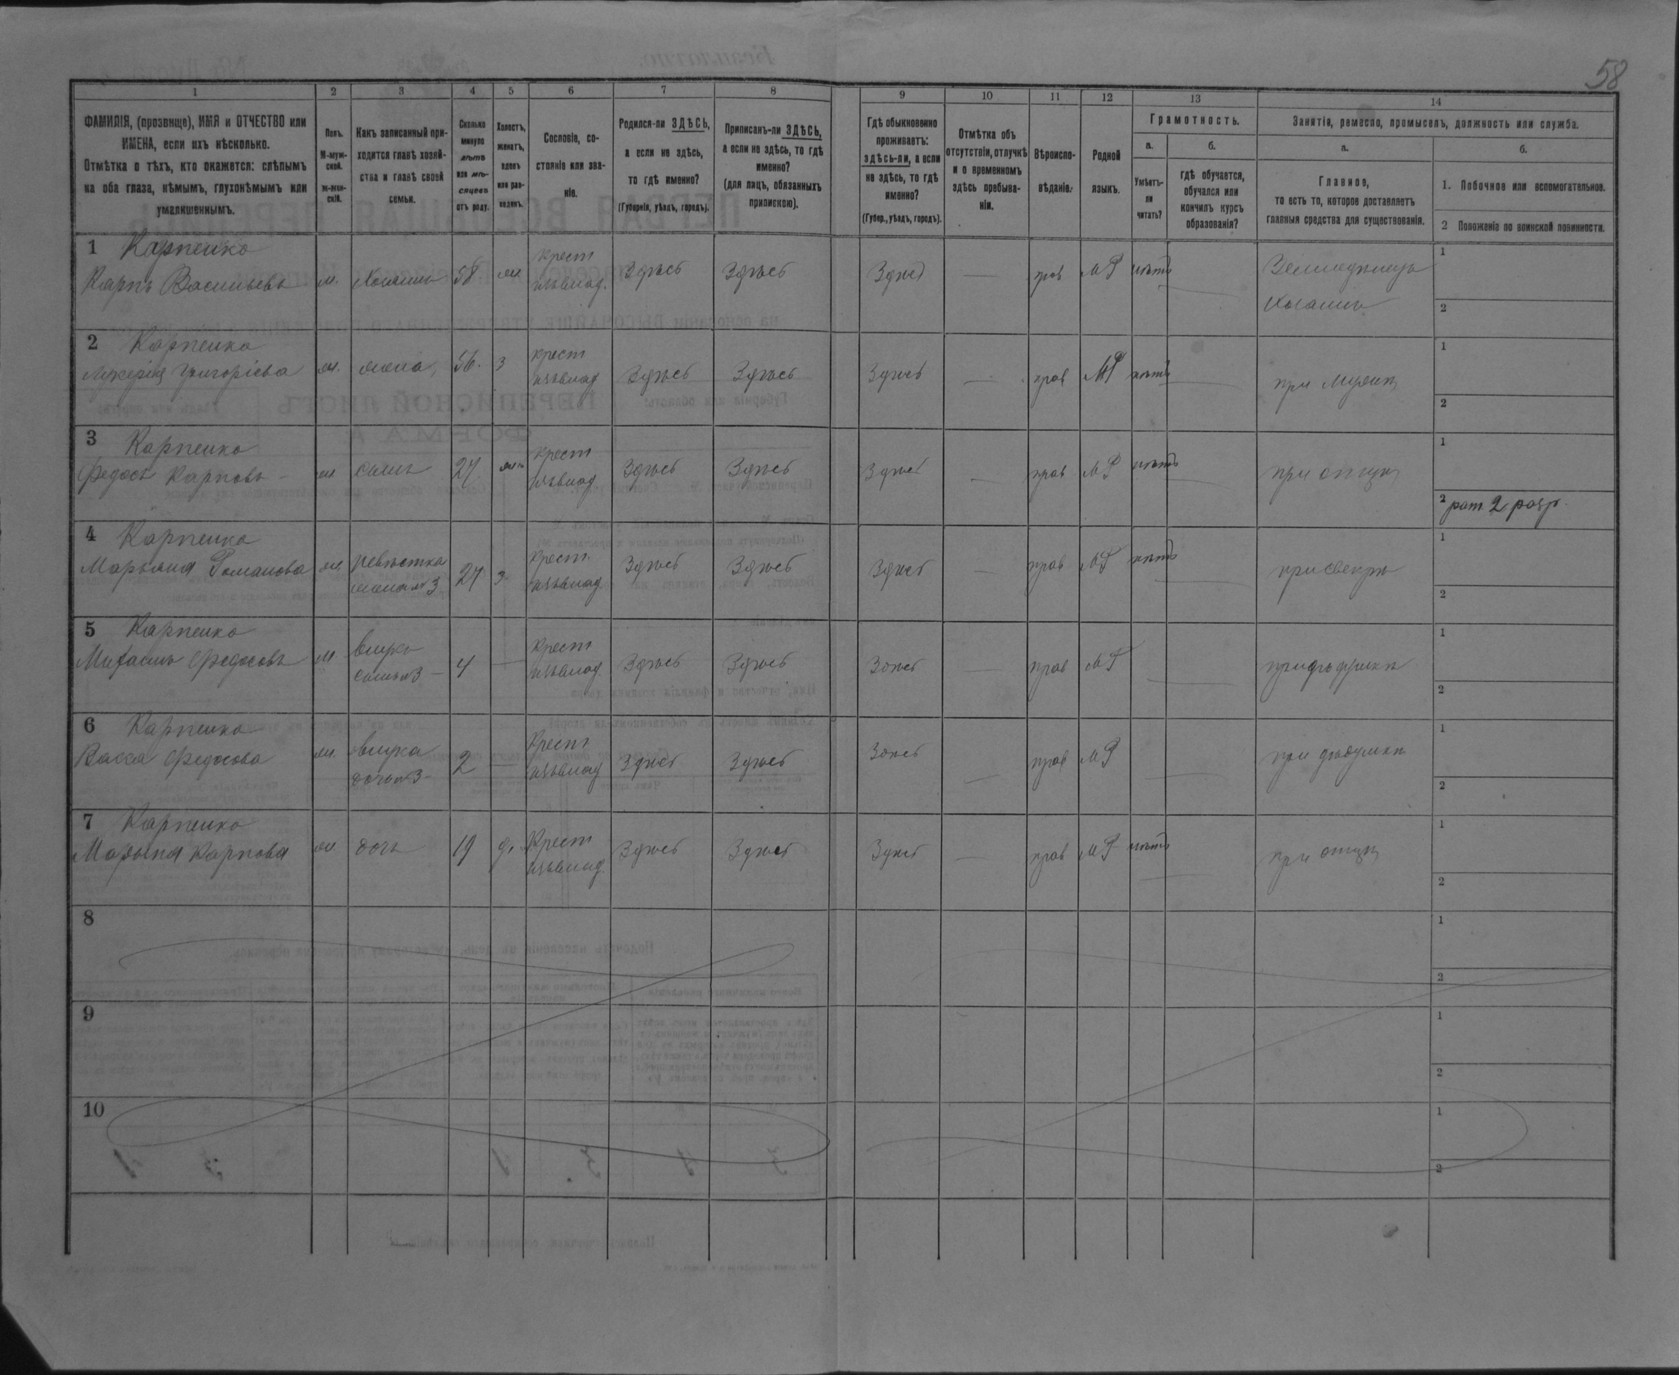 58
1 2 3 4 5 6 7 8 9 10 11 12 13 14
ФАМИЛІЯ, (прозвище), ИМЯ и ОТЧЕСТВО или
ИМЕНА, если ихъ нѣсколько.
Отмѣтка о тѣхъ, кто окажется: слѣпымъ
на оба глаза, нѣмымъ, глухонѣмымъ или
умалишеннымъ.
Полъ.
М-муж-
ской.
ж-жен-
скій.
Какъ записанный при-
ходится главѣ хозяй-
ства и главѣ своей
семьи.
Сколько
минуло
лѣтъ
или мѣ-
сяцевъ
отъ роду.
Холостъ,
женатъ,
вдовъ
или раз-
веденъ.
Сословіе, со-
стояніе или зва-
ніе.
Родился-ли ЗДѢСЬ,
а если не здѣсь,
то гдѣ именно?
(Губернія, уѣздъ, городъ).
Приписанъ-ли ЗДѢСЬ,
а если не здѣсь, то гдѣ
именно?
(для лицъ, обязанныхъ
припискою).
Гдѣ обыкновенно
проживаетъ:
здѣсь-ли, а если
не здѣсь, то гдѣ
именно?
(Губер., уѣздъ, городъ).
Отмѣтка объ
отсутствіи, отлучкѣ
и о временномъ
здѣсь пребыва-
ніи.
Вѣроиспо-
вѣданіе.
Родной
языкъ.
Грамотность.
а.
Умѣетъ-
ли
читать?
б.
гдѣ обучается,
обучался или
кончилъ курсъ
образованія?
Занятіе, ремесло, промыселъ, должность или служба.
а.
Главное,
то есть то, которое доставляетъ
главныя средства для существованія.
б.
1. Побочное или вспомогательное.
2 Положеніе по воинской повинности.
1 Карпенко
Карпъ Васильевъ м. хозяинъ 58 ж крест здѣсь здѣсь здѣсь — прав МР нѣтъ — Земледѣлецъ
хозяинъ
1
2
2 Карпенко
Григоріева ж. жена 56. з крест здѣсь здѣсь здѣсь — прав МР нѣтъ — при мужѣ
1
2
3 Карпенко
Федосъ Карповъ м сынъ 27 ж крест здѣсь здѣсь здѣсь — прав МР нѣтъ — при отцѣ
1
2 рат 2 разр.
4 Карпенко
Марьяна Романова ж невѣстка
жена №3 27 з крест здѣсь здѣсь здѣсь — прав МР нѣтъ — при свекрѣ
1
2
5 Карпенко
Михаилъ Федосовъ м внукъ
сынъ №3 4 — крест здѣсь здѣсь здѣсь — прав МР — при дѣдушкѣ
1
2
6 Карпенко
Васса Федосова ж. внука
дочь №3 2 — крест здѣсь здѣсь здѣсь — прав МР — при дѣдушкѣ
1
2
7 Карпенко
Марьяна Карпова ж дочь 19 д. Крест здѣсь здѣсь здѣсь — прав МР нѣтъ — при отцѣ
1
2
8
1
2
9
1
2
10
1
2